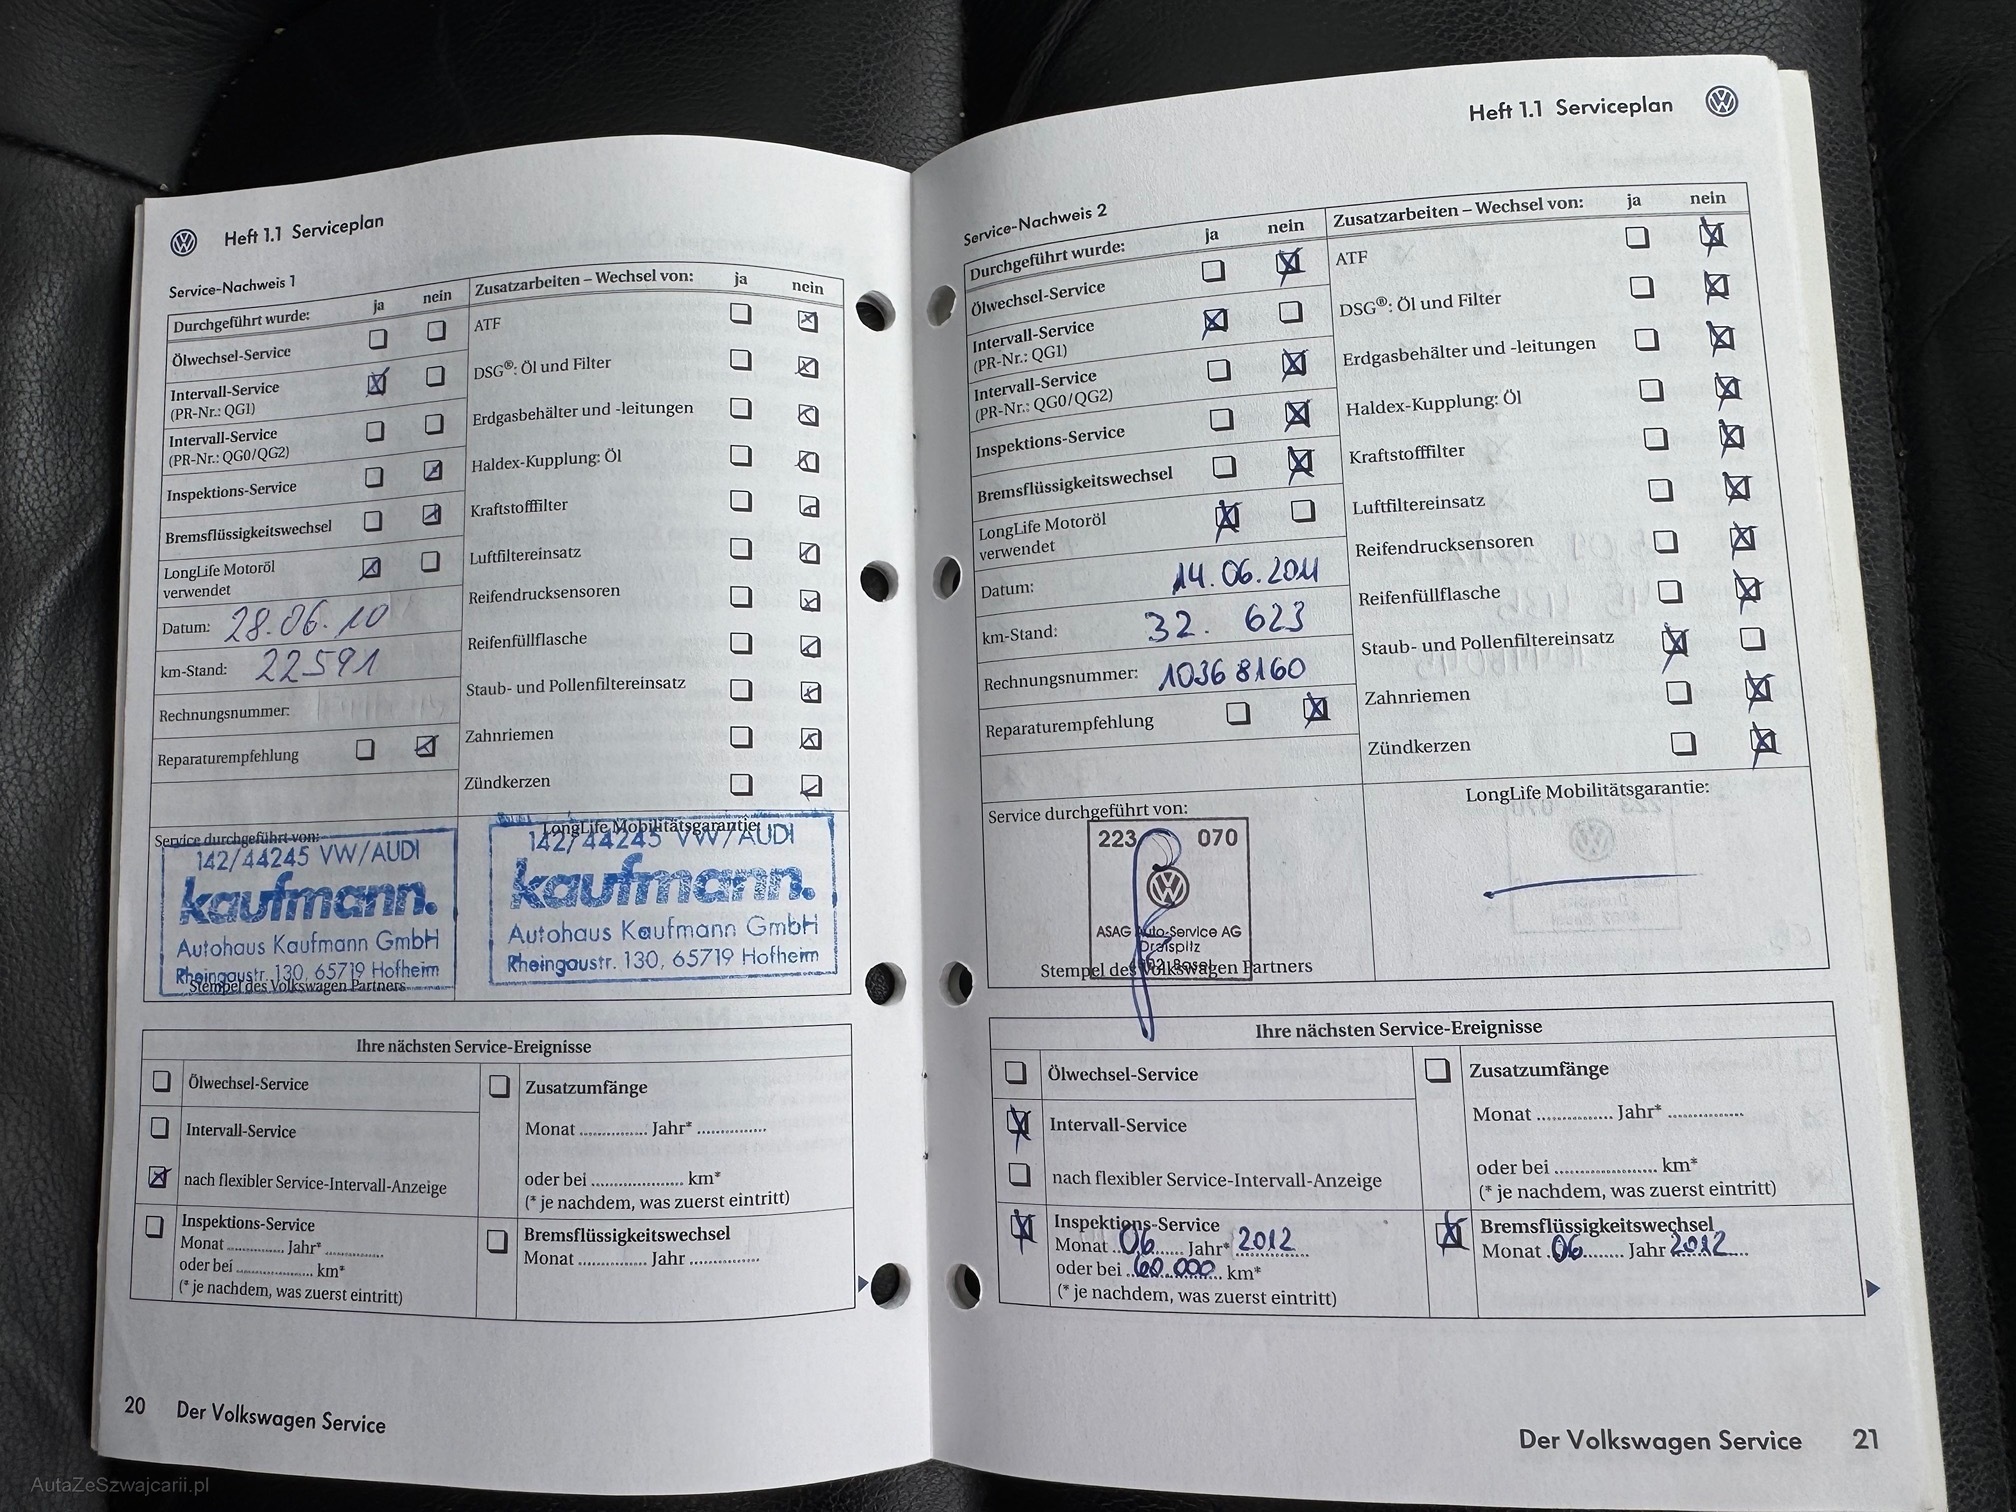 Heft 1.1 Serviceplan
Service-Nachweis 1
Durchgeführt wurde: ja nein
Ölwechsel-Service
Intervall-Service
(PR-Nr.: QG1)
Intervall-Service
(PR-Nr.: QG0/QG2)
Inspektions-Service
Bremsflüssigkeitswechsel
LongLife Motoröl
verwendet
Datum: 28.06.10
km-Stand: 22591
Rechnungsnummer:
Reparaturempfehlung
Zusatzarbeiten – Wechsel von: ja nein
ATF
DSG®: Öl und Filter
Erdgasbehälter und -leitungen
Haldex-Kupplung: Öl
Kraftstofffilter
Luftfiltereinsatz
Reifendrucksensoren
Reifenfüllflasche
Staub- und Pollenfiltereinsatz
Zahnriemen
Zündkerzen
Service durchgeführt von:
142/44245 VW/AUDI
kaufmann.
Autohaus Kaufmann GmbH
Rheingaustr. 130, 65719 Hofheim
Stempel des Volkswagen Partners
LongLife Mobilitätsgarantie:
142/44245 VW/AUDI
kaufmann.
Autohaus Kaufmann GmbH
Rheingaustr. 130, 65719 Hofheim
Ihre nächsten Service-Ereignisse
Ölwechsel-Service
Intervall-Service
nach flexibler Service-Intervall-Anzeige
Inspektions-Service
Monat ............ Jahr* ............
oder bei ............ km*
(* je nachdem, was zuerst eintritt)
Zusatzumfänge
Monat ............ Jahr* ............
oder bei ............ km*
(* je nachdem, was zuerst eintritt)
Bremsflüssigkeitswechsel
Monat ............ Jahr ............
20 Der Volkswagen Service
Heft 1.1 Serviceplan
Service-Nachweis 2
Durchgeführt wurde: ja nein
Ölwechsel-Service
Intervall-Service
(PR-Nr.: QG1)
Intervall-Service
(PR-Nr.: QG0/QG2)
Inspektions-Service
Bremsflüssigkeitswechsel
LongLife Motoröl
verwendet
Datum: 14.06.2011
km-Stand: 32. 623
Rechnungsnummer: 10368160
Reparaturempfehlung
Zusatzarbeiten – Wechsel von: ja nein
ATF
DSG®: Öl und Filter
Erdgasbehälter und -leitungen
Haldex-Kupplung: Öl
Kraftstofffilter
Luftfiltereinsatz
Reifendrucksensoren
Reifenfüllflasche
Staub- und Pollenfiltereinsatz
Zahnriemen
Zündkerzen
Service durchgeführt von:
223 070
ASAG Auto-Service AG
Dreispitz
Basel
Stempel des Volkswagen Partners
LongLife Mobilitätsgarantie:
Ihre nächsten Service-Ereignisse
Ölwechsel-Service
Intervall-Service
nach flexibler Service-Intervall-Anzeige
Inspektions-Service
Monat 06 Jahr* 2012
oder bei 60.000 km*
(* je nachdem, was zuerst eintritt)
Zusatzumfänge
Monat ............ Jahr* ............
oder bei ............ km*
(* je nachdem, was zuerst eintritt)
Bremsflüssigkeitswechsel
Monat 06 Jahr 2012
Der Volkswagen Service 21
AutaZeSzwajcarii.pl